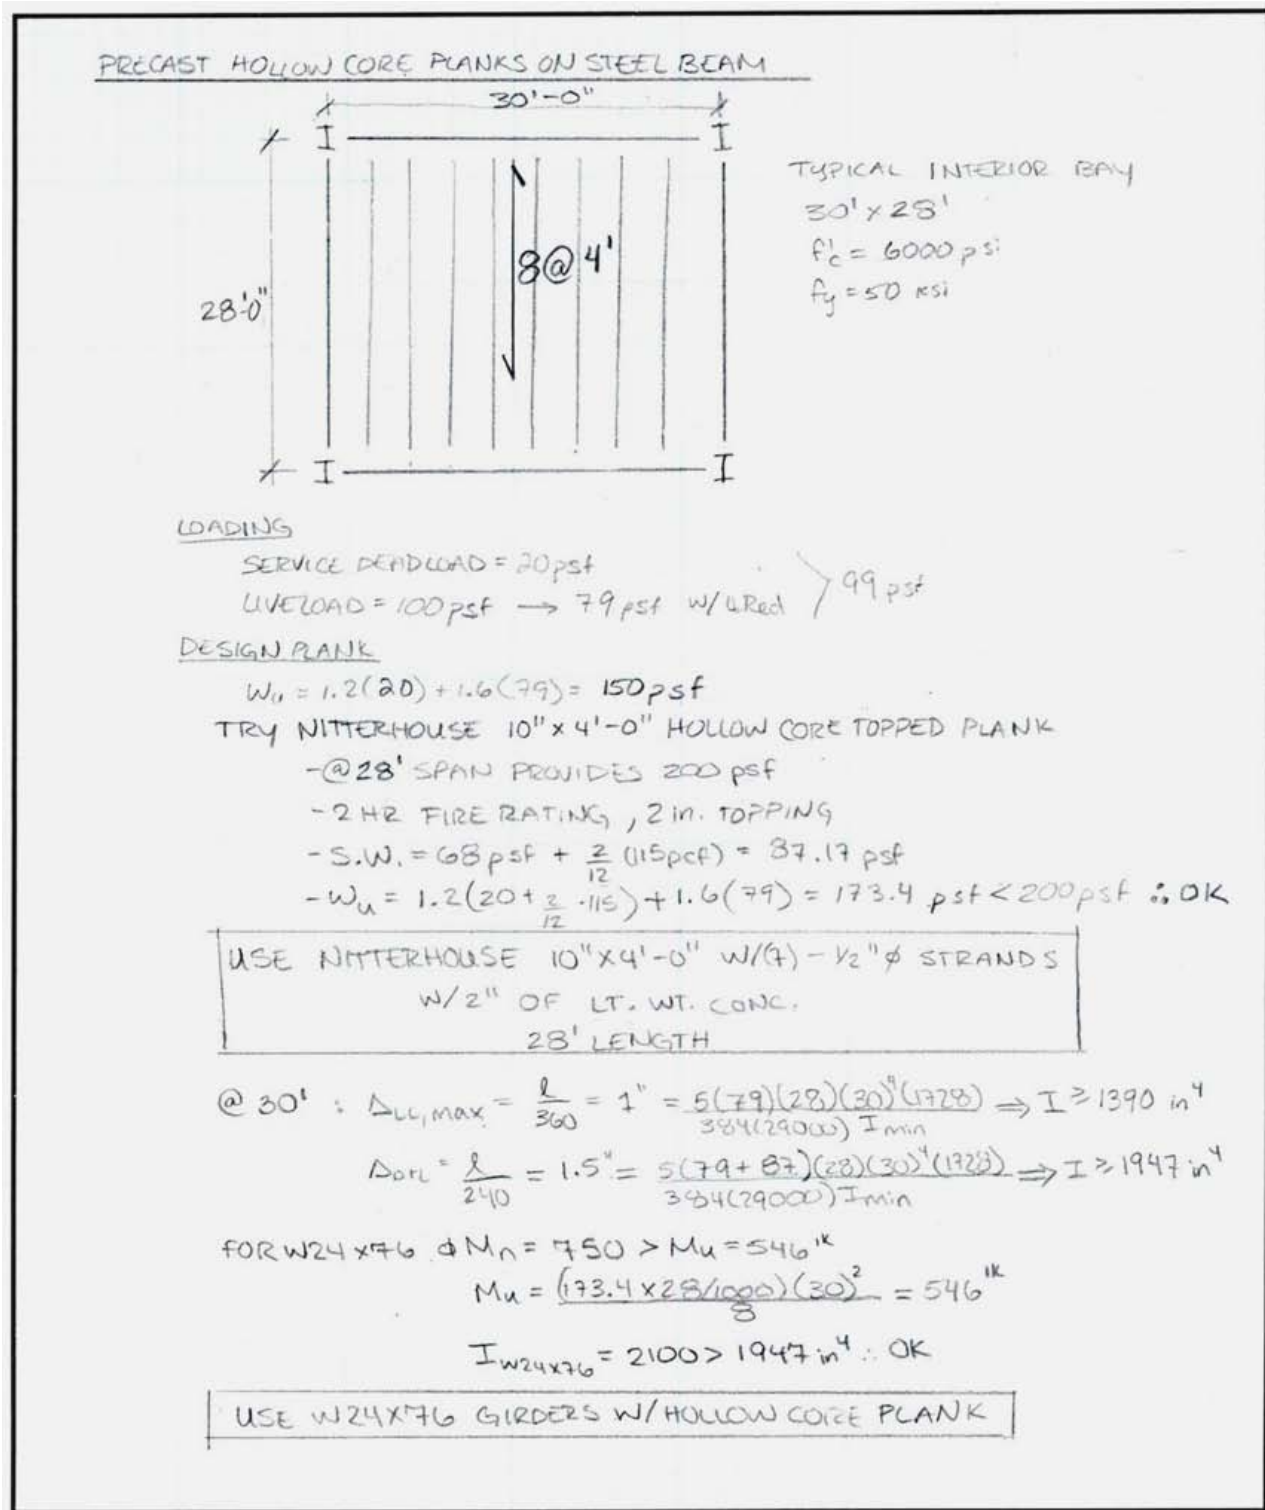 PRECAST HOLLOW CORE PLANKS ON STEEL BEAM
30'-0"
I I
TYPICAL INTERIOR BAY
30' x 28'
f'c = 6000 psi
fy = 50 ksi
8@4'
28'0"
I I
LOADING
SERVICE DEADLOAD = 20psf
LIVELOAD = 100psf → 79psf w/ LLRed > 99 psf
DESIGN PLANK
Wu = 1.2(20) + 1.6(79) = 150psf
TRY NITTERHOUSE 10" x 4'-0" HOLLOW CORE TOPPED PLANK
-@28' SPAN PROVIDES 200 psf
-2 HR FIRE RATING, 2 in. TOPPING
-S.W. = 68psf + 2/12 (115pcf) = 87.17 psf
-Wu = 1.2(20+ 2/12 ·115) + 1.6(79) = 173.4 psf < 200psf ∴ OK
USE NITTERHOUSE 10"x4'-0" W/(7) - 1/2"ø STRANDS
W/2" OF LT. WT. CONC.
28' LENGTH
@ 30' : ΔLL,max = l/360 = 1" = 5(79)(28)(30)⁴(1728) / 384(29000) Imin ⇒ I ≥ 1390 in⁴
ΔDTL = l/240 = 1.5" = 5(79+87)(28)(30)⁴(1728) / 384(29000) Imin ⇒ I ≥ 1947 in⁴
FOR W24x76 ϕMn = 750 > Mu = 546 'k
Mu = (173.4 x 28/1000)(30)² / 8 = 546 'k
I W24x76 = 2100 > 1947 in⁴ ∴ OK
USE W24X76 GIRDERS W/ HOLLOW CORE PLANK